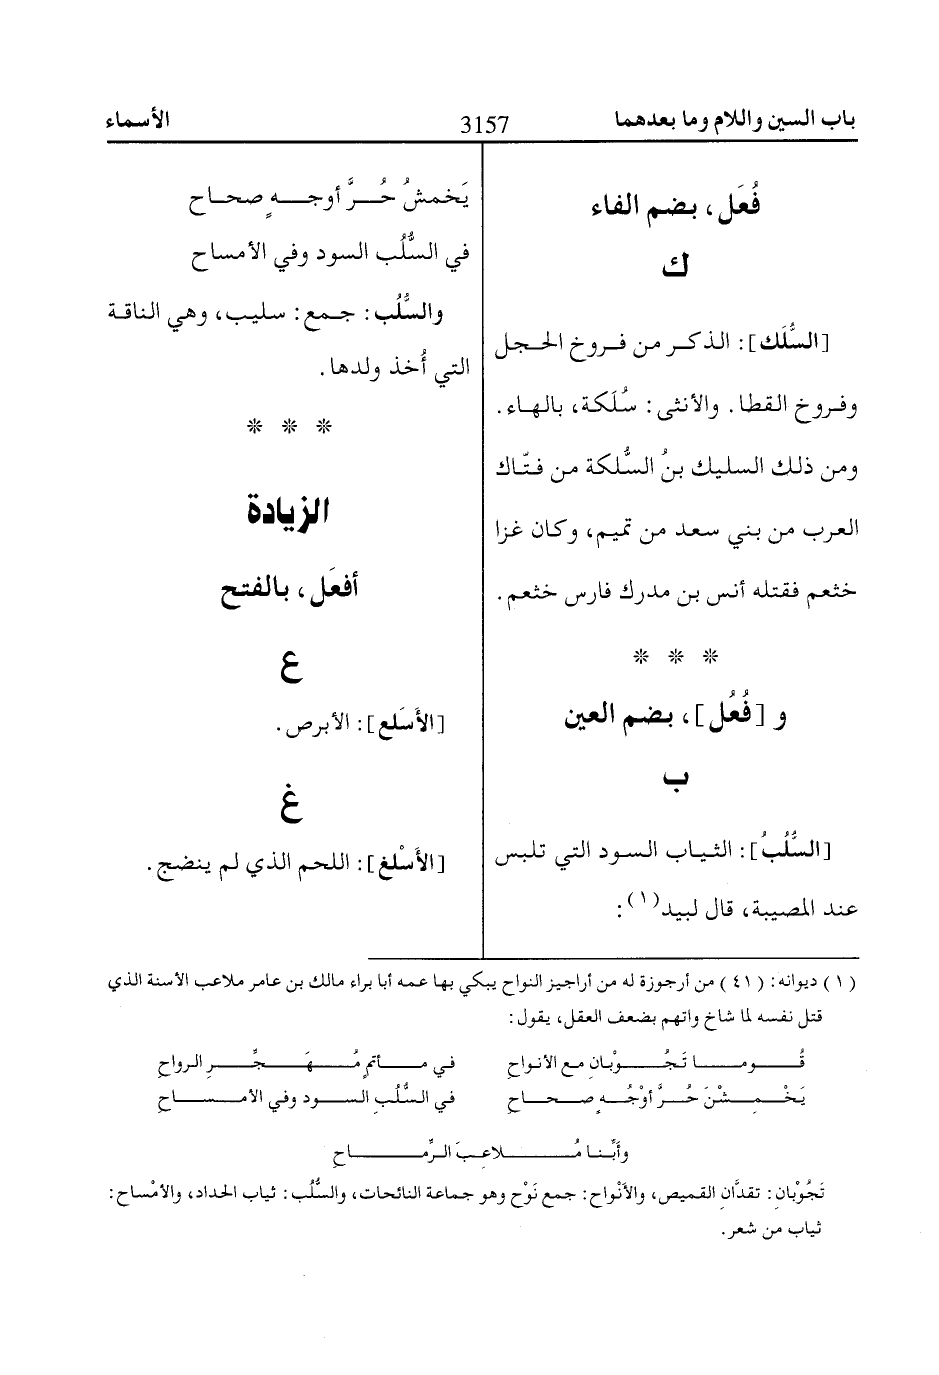 باب السين واللام وما بعدهما
3157
الأسماء
فُعَل، بضم الفاء
ك
[السُّلَك]: الذكر من فروخ الحجل
وفروخ القطا. والأنثى: سُلَكة، بالهاء.
ومن ذلك السليك بنُ السُّلكة من فتّاك
العرب من بني سعد من تميم، وكان غزا
خثعم فقتله أنس بن مدرك فارس خثعم.
* * *
و [فُعُل]، بضم العين
ب
[السُّلُبُ]: الثياب السود التي تلبس
عند المصيبة، قال لبيد(١):
يَخمشُ حُرَّ أوجهٍ صحاح
في السُّلُب السود وفي الأمساح
والسُّلُب: جمع: سليب، وهي الناقة
التي أُخذ ولدها.
* * *
الزيادة
أفعَل، بالفتح
ع
[الأَسَلع]: الأبرص.
غ
[الأَسْلغ]: اللحم الذي لم ينضج.
(١) ديوانه: (٤١) من أرجوزة له من أراجيز النواح يبكي بها عمه أبا براء مالك بن عامر ملاعب الأسنة الذي
قتل نفسه لما شاخ واتهم بضعف العقل، يقول:
قُومَا تَجُوْبان مع الأنواح في مأتمٍ مُهَجِّرِ الرواحِ
يَخْمِشْنَ حُرَّ أوْجُهٍ صحاحِ في السُّلُبِ السود وفي الأمساحِ
وأبِّنا مُلاعِبَ الرِّماحِ
تَجُوْبان: تقدَّان القميص، والأنْواح: جمع نَوْح وهو جماعة النائحات، والسُّلُب: ثياب الحداد، والأمْساح:
ثياب من شعر.